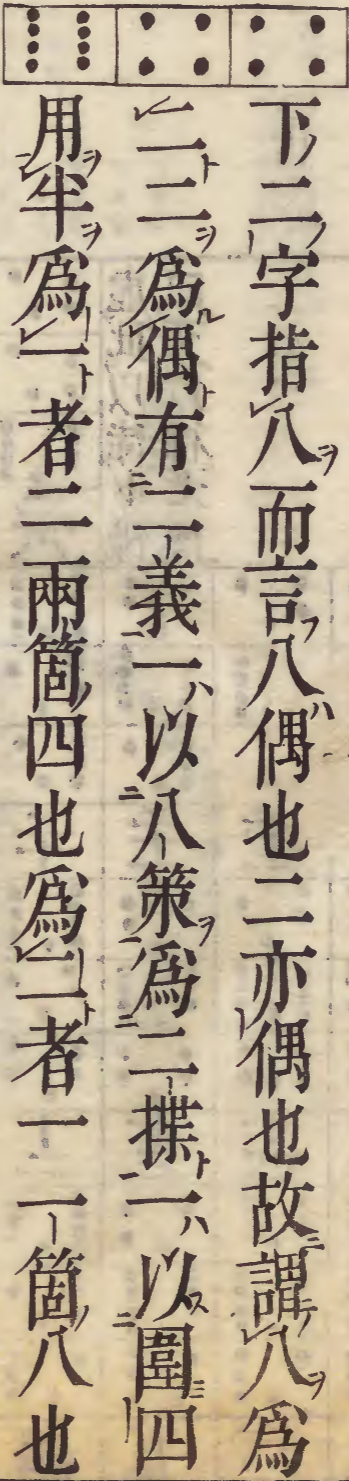 下二字指八而言八偶也二亦偶也故謂八爲
二二爲偶有二義一以八策爲二揲一以圍四
用半爲一者二兩箇四也爲二者一一箇八也